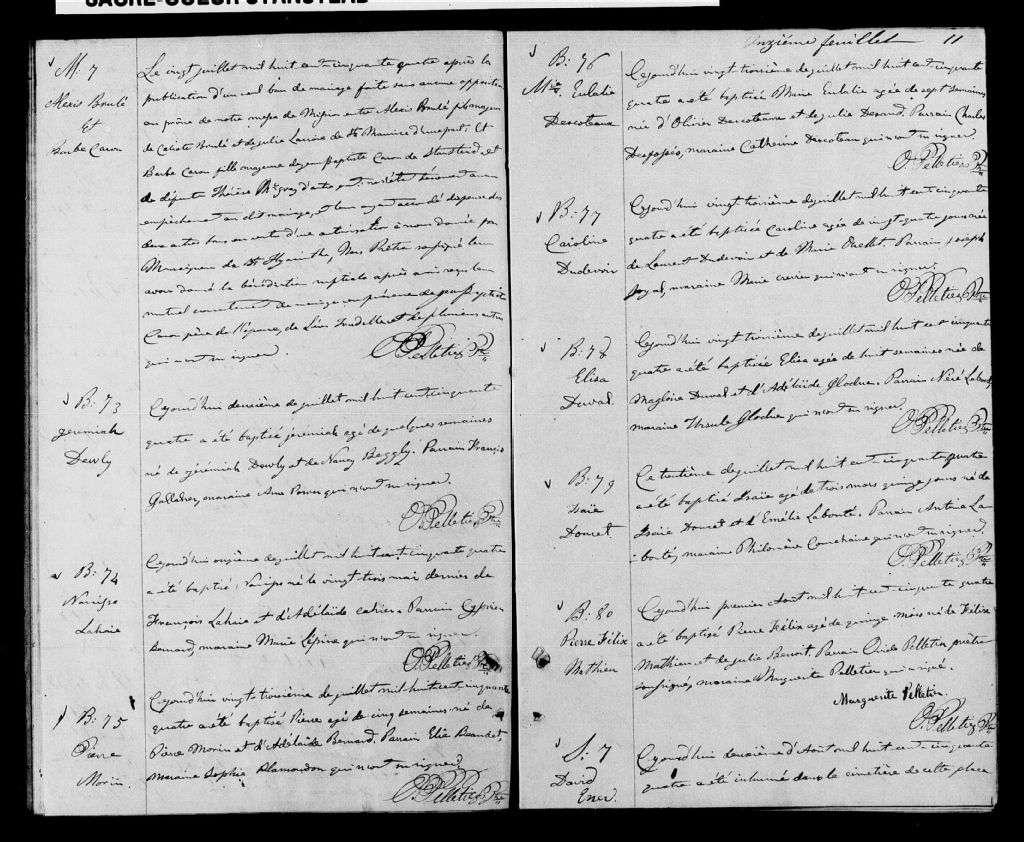 SACRÉ-COEUR STANSTEAD
M. 7
Alexis Boulé
Et
Barbe Caron
Le vingt juillet mil huit cent cinquante quatre après la
publication d'un seul ban de mariage faite sans aucune opposition
au prône de notre messe de Mission entre Alexis Boulé fils majeur
de Calixte Boulé et de julie de St Maurice d'une part. Et
Barbe Caron fille majeure de jean Baptiste Caron de Stanstead et
de défunte Thérèse d'autre part, ne s'étant découvert aucun
empêchement au dit mariage, et leur ayant accordé dispense des
deux autres bans en vertu d'une autorisation à nous donnée par
Monseigneur de St Hyacinthe, Nous Prêtre soussigné leur
avons donné la bénédiction nuptiale après avoir reçu leur
mutuel consentement de mariage en présence de jean Baptiste
Caron père de l'épouse, de Léon et de plusieurs autres
qui n'ont su signer.
O. Pelletier Ptre
B: 73
jeremiah
Dewly
Cejourd'hui deuxième de juillet mil huit cent cinquante
quatre a été baptisé jeremiah agé de quelques semaines
né de jérémiah Dewly et de Nancy Beggly. Parrain François
Gallahey, maraine Ann Power qui n'ont su signer.
O. Pelletier Ptre
B: 74
Narcisse
Lahaie
Cejourd'hui onzième de juillet mil huit cent cinquante quatre
a été baptisé Narcisse né le vingt trois mai dernier de
François Lahaie et d'Adélaide cahier. Parrain Cyprien
Bernard, maraine Marie Lepire qui n'ont su signer.
O. Pelletier Ptre
B: 75
Pierre
Morin.
Cejourd'hui vingt-troisième de juillet mil huit cent cinquante
quatre a été baptisé Pierre agé de cinq semaines né de
Pierre Morin et d'Adélaide Bernard. Parrain Elie Beaudet,
Maraine Sophie Plamondon qui n'ont su signer.
O. Pelletier Ptre
Onzième feuillet 11
B: 76
Mie. Eulalie
Descoteaux
Cejourd'hui vingt troisième de juillet mil huit cent cinquante
quatre a été baptisée Marie Eulalie agée de sept semaines
née d'Olivier Descoteaux et de julie Durand. Parrain Charles
Desfossés, maraine Catherine Descoteau qui n'ont su signer.
O. Pelletier Ptre
B: 77
Caroline
Dudevoir
Cejourd'hui vingt-troisième de juillet mil huit cent cinquante
quatre a été baptisée Caroline agée de vingt-quatre jours née
de Laurent Dudevoir et de Marie Ouellet Parrain joseph
joyal, maraine Marie qui n'ont su signer.
O. Pelletier Ptre
B: 78
Elisa
Duval.
Cejourd'hui vingt troisième de juillet mil huit cent cinquante
quatre a été baptisée Elisa agée de huit semaines née de
Magloire Duval et d'Adélaïde Gloduc. Parrain Néré Labonté,
maraine Ursule Gloduc qui n'ont su signer.
O. Pelletier Ptre
B: 79
Isaïe
Doucet.
Ce trentième de juillet mil huit cent cinquante quatre
a été baptisé Isaïe agé de trois mois quinze jours né de
Isaïe Doucet et d'Emélie Labonté. Parrain Antoine La-
bonté, maraine Philomène qui n'ont su signer.
O. Pelletier Ptre
B: 80
Pierre Félix
Mathieu
Cejourd'hui premier Août mil huit cent cinquante quatre
a été baptisé Pierre Félix agé de quinze mois né de Félix
Mathieu et de julie Benoit. Parrain Ovide Pelletier prêtre
soussigné, maraine Marguerite Pelletier qui a signé.
Marguerite Pelletier.
O. Pelletier Ptre
S. 7
David
Ener.
Cejourd'hui deuxième d'Août mil huit cent cinquante
quatre a été inhumé dans le cimetière de cette place